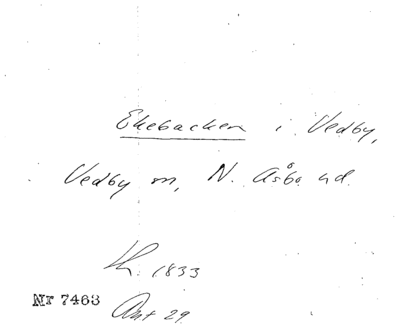 Ekebacken i Vedby,
Vedby sn, N. Åsbo hd.
Lh. 1833
Nr 7463
Akt 29.